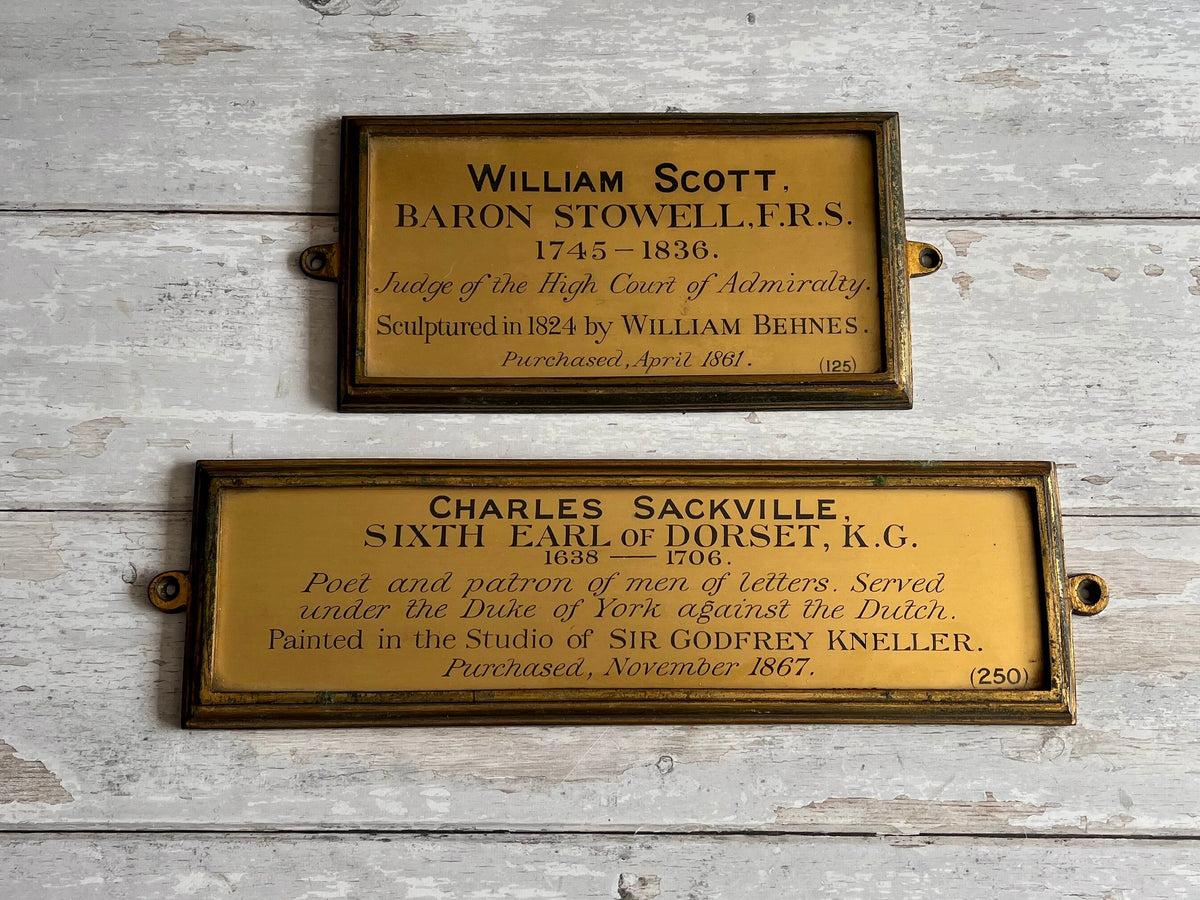 WILLIAM SCOTT,
BARON STOWELL, F.R.S.
1745 – 1836.
Judge of the High Court of Admiralty.
Sculptured in 1824 by WILLIAM BEHNES.
Purchased, April 1861.
(125)
CHARLES SACKVILLE,
SIXTH EARL OF DORSET, K.G.
1638 — 1706.
Poet and patron of men of letters. Served
under the Duke of York against the Dutch.
Painted in the Studio of SIR GODFREY KNELLER.
Purchased, November 1867.
(250)